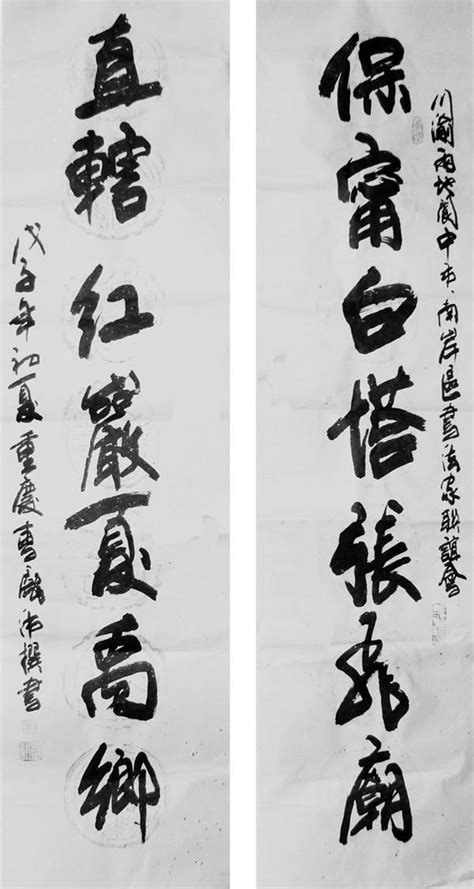 川渝两地阆中市、南岸區書法家聯誼會
保甯白塔張飛廟
直轄紅巖夏禹鄉
戊子年初夏重慶曹
撰書